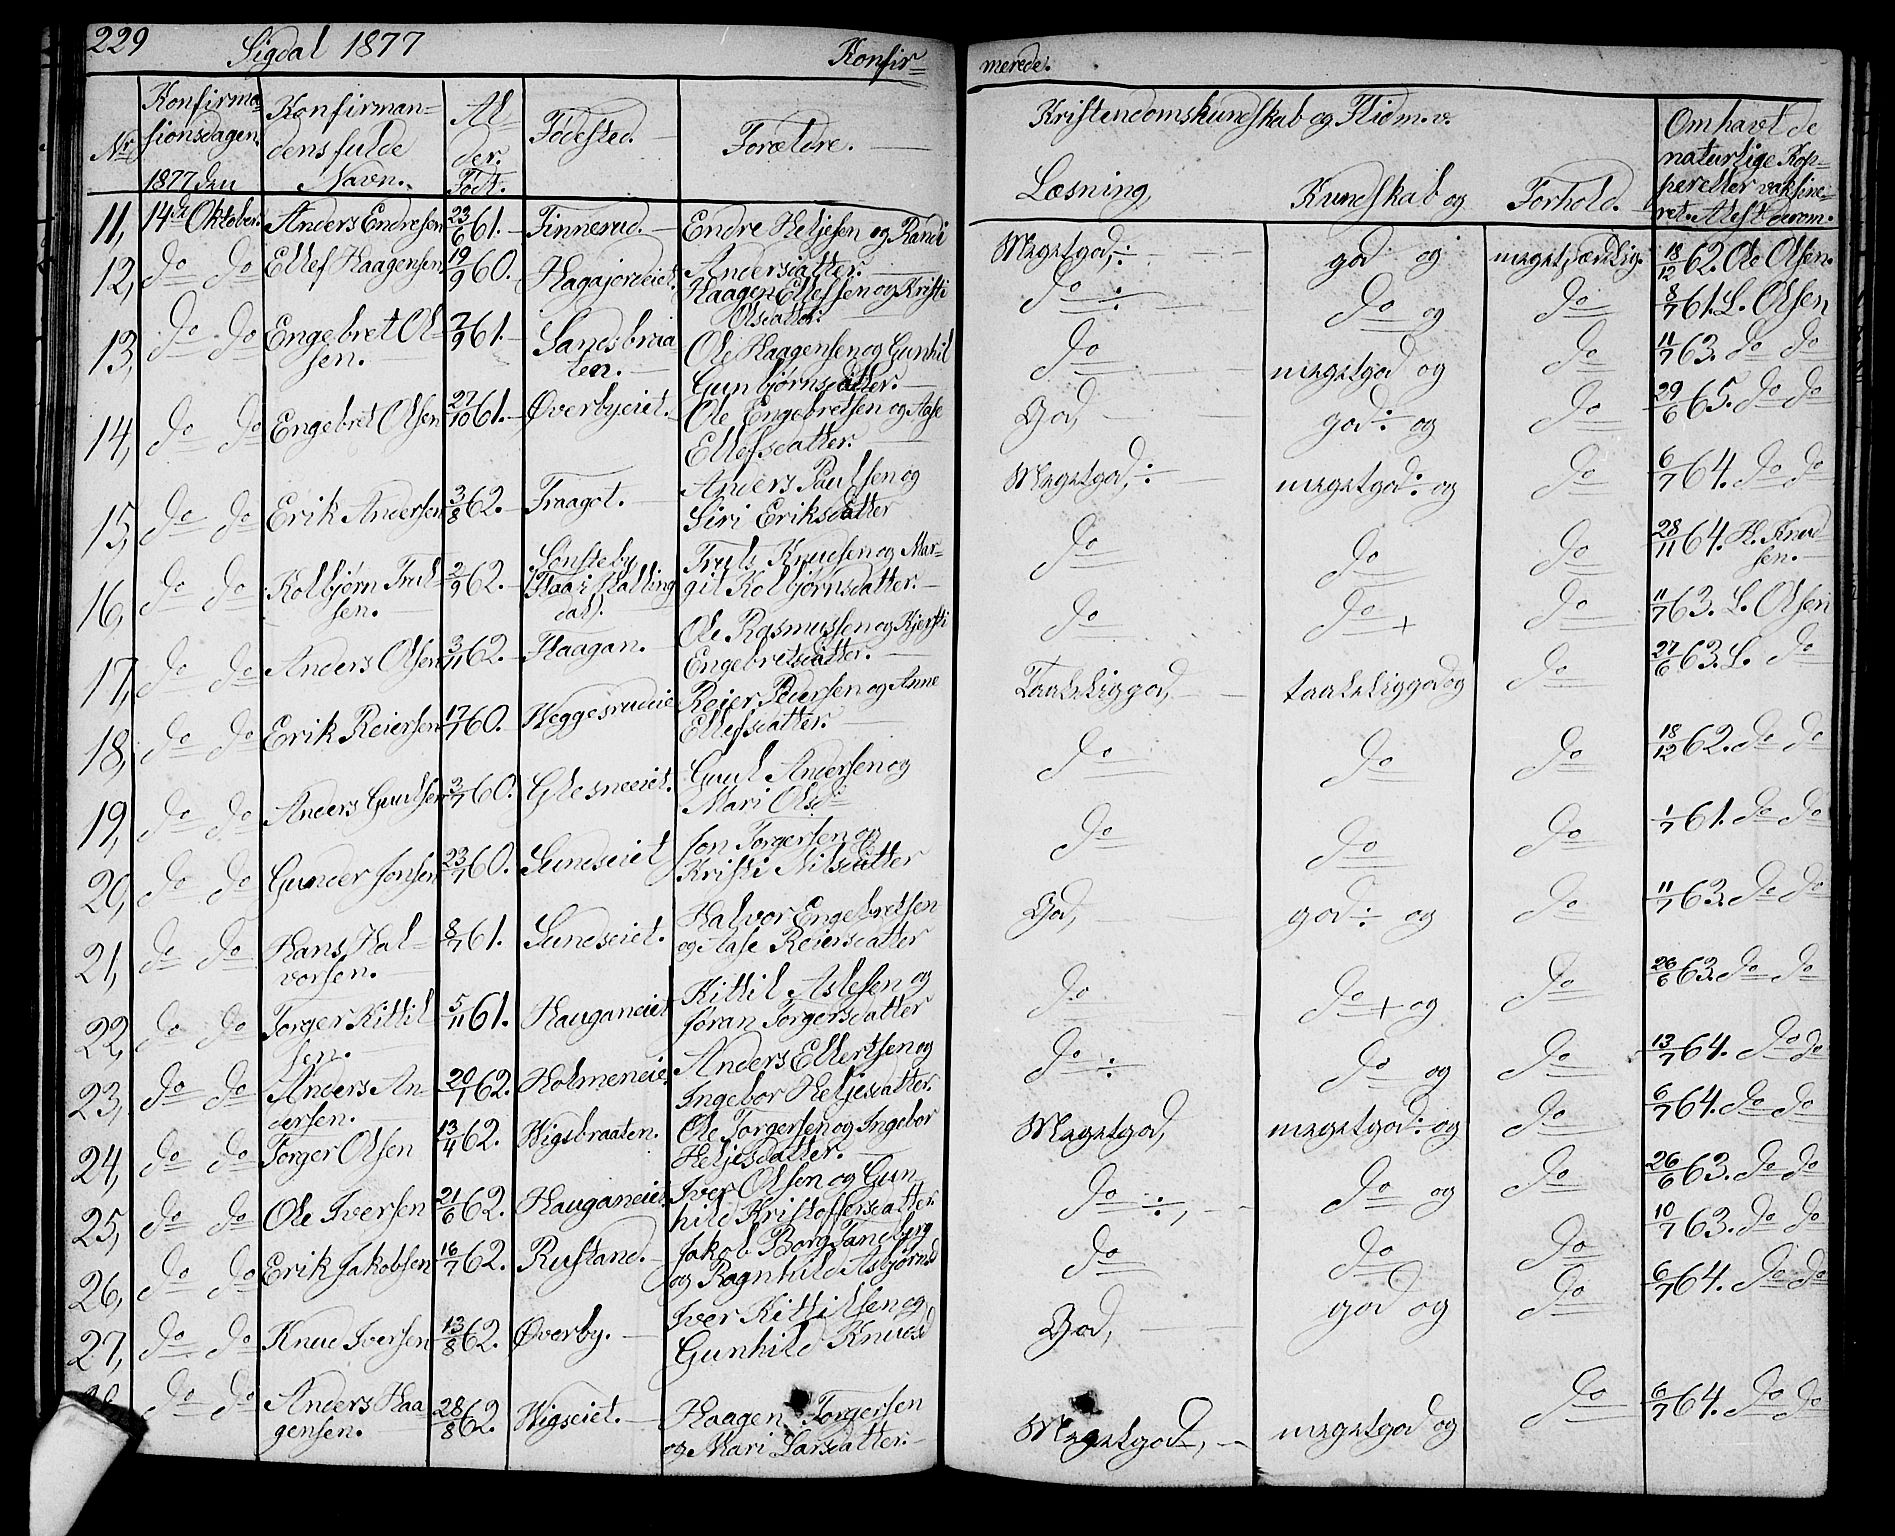 229 Sigdal 1877 Konfir=
merede.
Nr. Konfirma= sionsdagen. 1877 den | Konfirman= dens fulde Navn. | Al= der. Født. | Fødested. | Forældre. | Kristendomskundskab og Flid m.v. Læsning, Kundskab og Forhold. | Om havt de naturlige Kop= per eller vaksine= ret. Attest derom.
11, 14de Oktober. Anders Endresen 23/6 61. Finnerud. Endre Heljesen og Randi
Andersdatter. Megetgod, god og meget sædelig. 18/12 62. Ole Olsen.
12, do do Ellef Haagensen 19/9 60. Hagajordeiet. Haagen Ellefsen og Kristi
Olsdatter. do do og do 8/7 61. L. Olsen
13, do do Engebret Ol= 7/9 61. Sandsbraa Ole Haagensen og Gunhil
sen. ten. Gunbjørnsdatter. do megetgod og do 11/7 63. do do
14, do do Engebret Olsen 27/10 61. Øverbyeiet. Ole Engebretsen og Aase
Ellefsdatter. God, god og do 29/6 65. do do
15, do do Erik Andersen 3/8 62. Fraagot. Anders Paulsen og
Siri Eriksdatter Megetgod, megetgod og do 6/7 64. do do
16, do do Kolbjørn Trul= 2/9 62. Sønsteby Truls Knudsen og Mar=
sen. Flaa i Halling git Kolbjørnsdatter.
dal. do do do 28/11 64. H. Knud
sen.
17, do do Anders Olsen 3/11 62. Haagan. Ole Rasmussen og Kjersti
Engebretsdatter. do do + do 11/7 63. L. Olsen
18, do do Erik Reiersen 17/7 60. Heggesrudeie Reier Pedersen og Anne
Ellefsdatter. Taaleliggod, taaleliggod og do 27/6 63. L. do
19, do do Anders Guulsen 3/7 60. Glesneeiet. Guul Andersen og
Mari Olsd. do do do 18/12 62. do do
20, do do Gunder Jonsen 23/7 60. Sundseiet Jon Torgersen og
Kristi Nilsdatter do do do 1/7 61. do do
21, do do Hans Hal= 8/7 61. Sundseiet. Halvor Engebretsen
vorsen. og Aase Reiersdatter God, god og do 11/7 63. do do
22, do do Torger Kittil 5/11 61. Hauganeiet Kittil Aslesen og
sen. Jøran Torgersdatter do do + og do 26/6 63. do do
23, do do Anders An= 20/1 62. Holmeneie. Anders Ellertsen og
dersen. Ingebor Heljesdatter. do do og do 13/7 64. do do
24, do do Torger Olsen 13/4 62. Vigsbraaten. Ole Torgersen og Ingebor
Heljesdatter. Megetgod, megetgod og do 6/7 64. do do
25, do do Ole Iversen 21/6 62. Hauganeiet Iver Olsen og Gun
hild Kristoffersdatter do do og do 26/6 63. do do
26, do do Erik Jakobsen 16/7 62. Rustand. Jakob Borg Tandberg
og Ragnhild Asbjørnsd do do do 10/7 63. do do
27, do do Knud Iversen 13/8 62. Øverby. Iver Kittilsen og
Gunhild Knudsd God, god og do 6/7 64. do do
do do Anders Haa 28/8 62. Vigseiet. Haagen Torgersen
gensen. og Mari Larsdatter. Megetgod, megetgod og do 6/7 64. do do